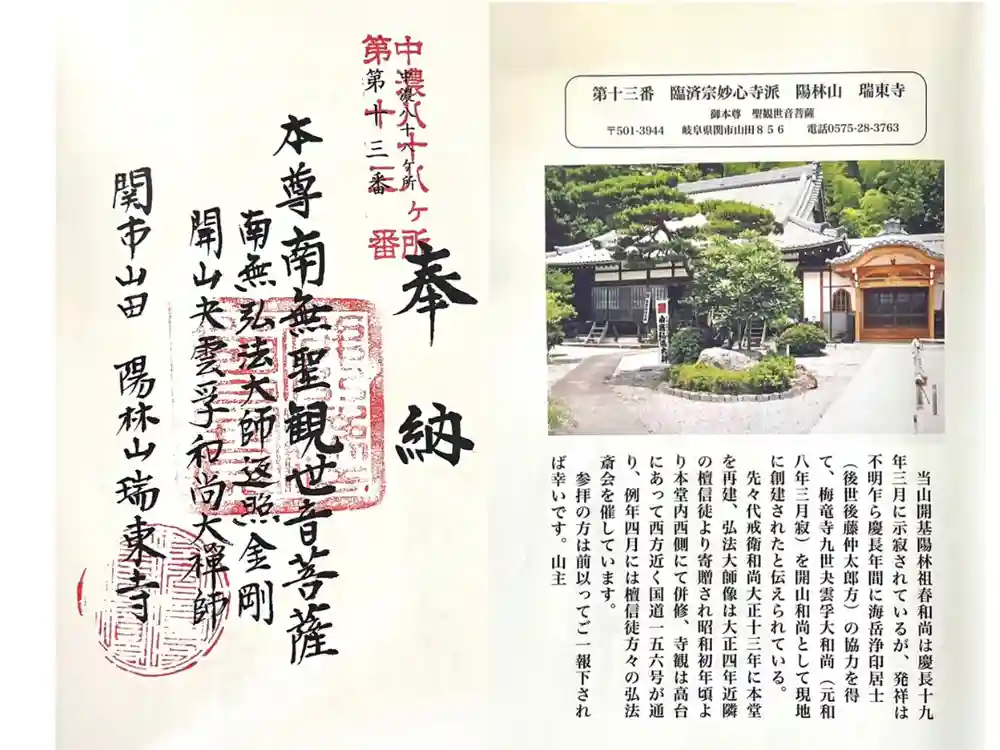 第十三番　臨済宗妙心寺派　陽林山　瑞東寺
御本尊　聖観世音菩薩
〒501-3944　岐阜県関市山田８５６　電話0575-28-3763
当山開基陽林祖春和尚は慶長十九
年三月に示寂されているが、発祥は
不明乍ら慶長年間に海岳浄印居士
（後世後藤伸太郎方）の協力を得
て、梅竜寺九世夬雲孚大和尚（元和
八年三月寂）を開山和尚として現地
に創建されたと伝えられている。
先々代戒衛和尚大正十三年に本堂
を再建、弘法大師像は大正四年近隣
の檀信徒より寄贈され昭和初年頃よ
り本堂内西側にて併修、寺観は高台
にあって西方近く国道一五六号が通
り、例年四月には檀信徒方々の弘法
斎会を催しています。
参拝の方は前以ってご一報下され
ば幸いです。山主
奉納
中濃八十八ヶ所
第十三番
中濃八十八ヶ所
第十三番
本尊南無聖観世音菩薩
南無弘法大師返照金剛
開山夬雲孚和尚大禅師
関市山田　陽林山瑞東寺